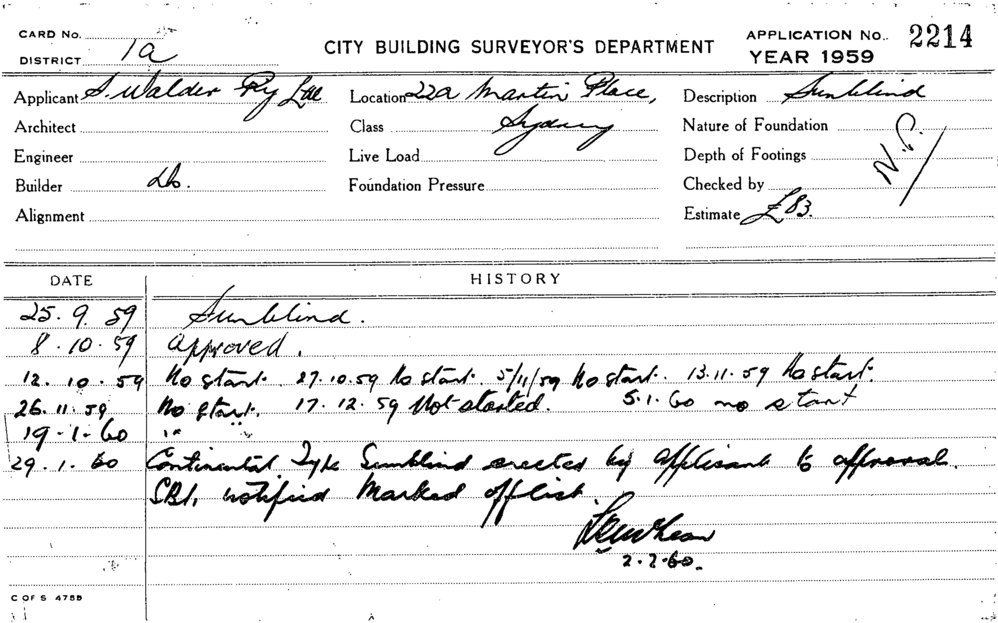 CARD No.
DISTRICT 1a
CITY BUILDING SURVEYOR'S DEPARTMENT
APPLICATION No. 2214
YEAR 1959
Applicant S. Walder Pty Ltd
Location 22a Martin Place,
Description Sunblind
Architect
Class Sydney
Nature of Foundation
Engineer
Live Load
Depth of Footings
N.P.
Builder do.
Foundation Pressure
Checked by
Alignment
Estimate £83.
DATE HISTORY
25.9.59 Sunblind.
8.10.59 Approved.
12.10.59 No start. 27.10.59 No start. 5/11/59 No start. 13.11.59 No start.
26.11.59 No start. 17.12.59 Not started. 5.1.60 no start
19.1.60 "
29.1.60 Continental Type Sunblind erected by applicant to approval.
notified Marked off list.
2.2.60.
C OF S 475B